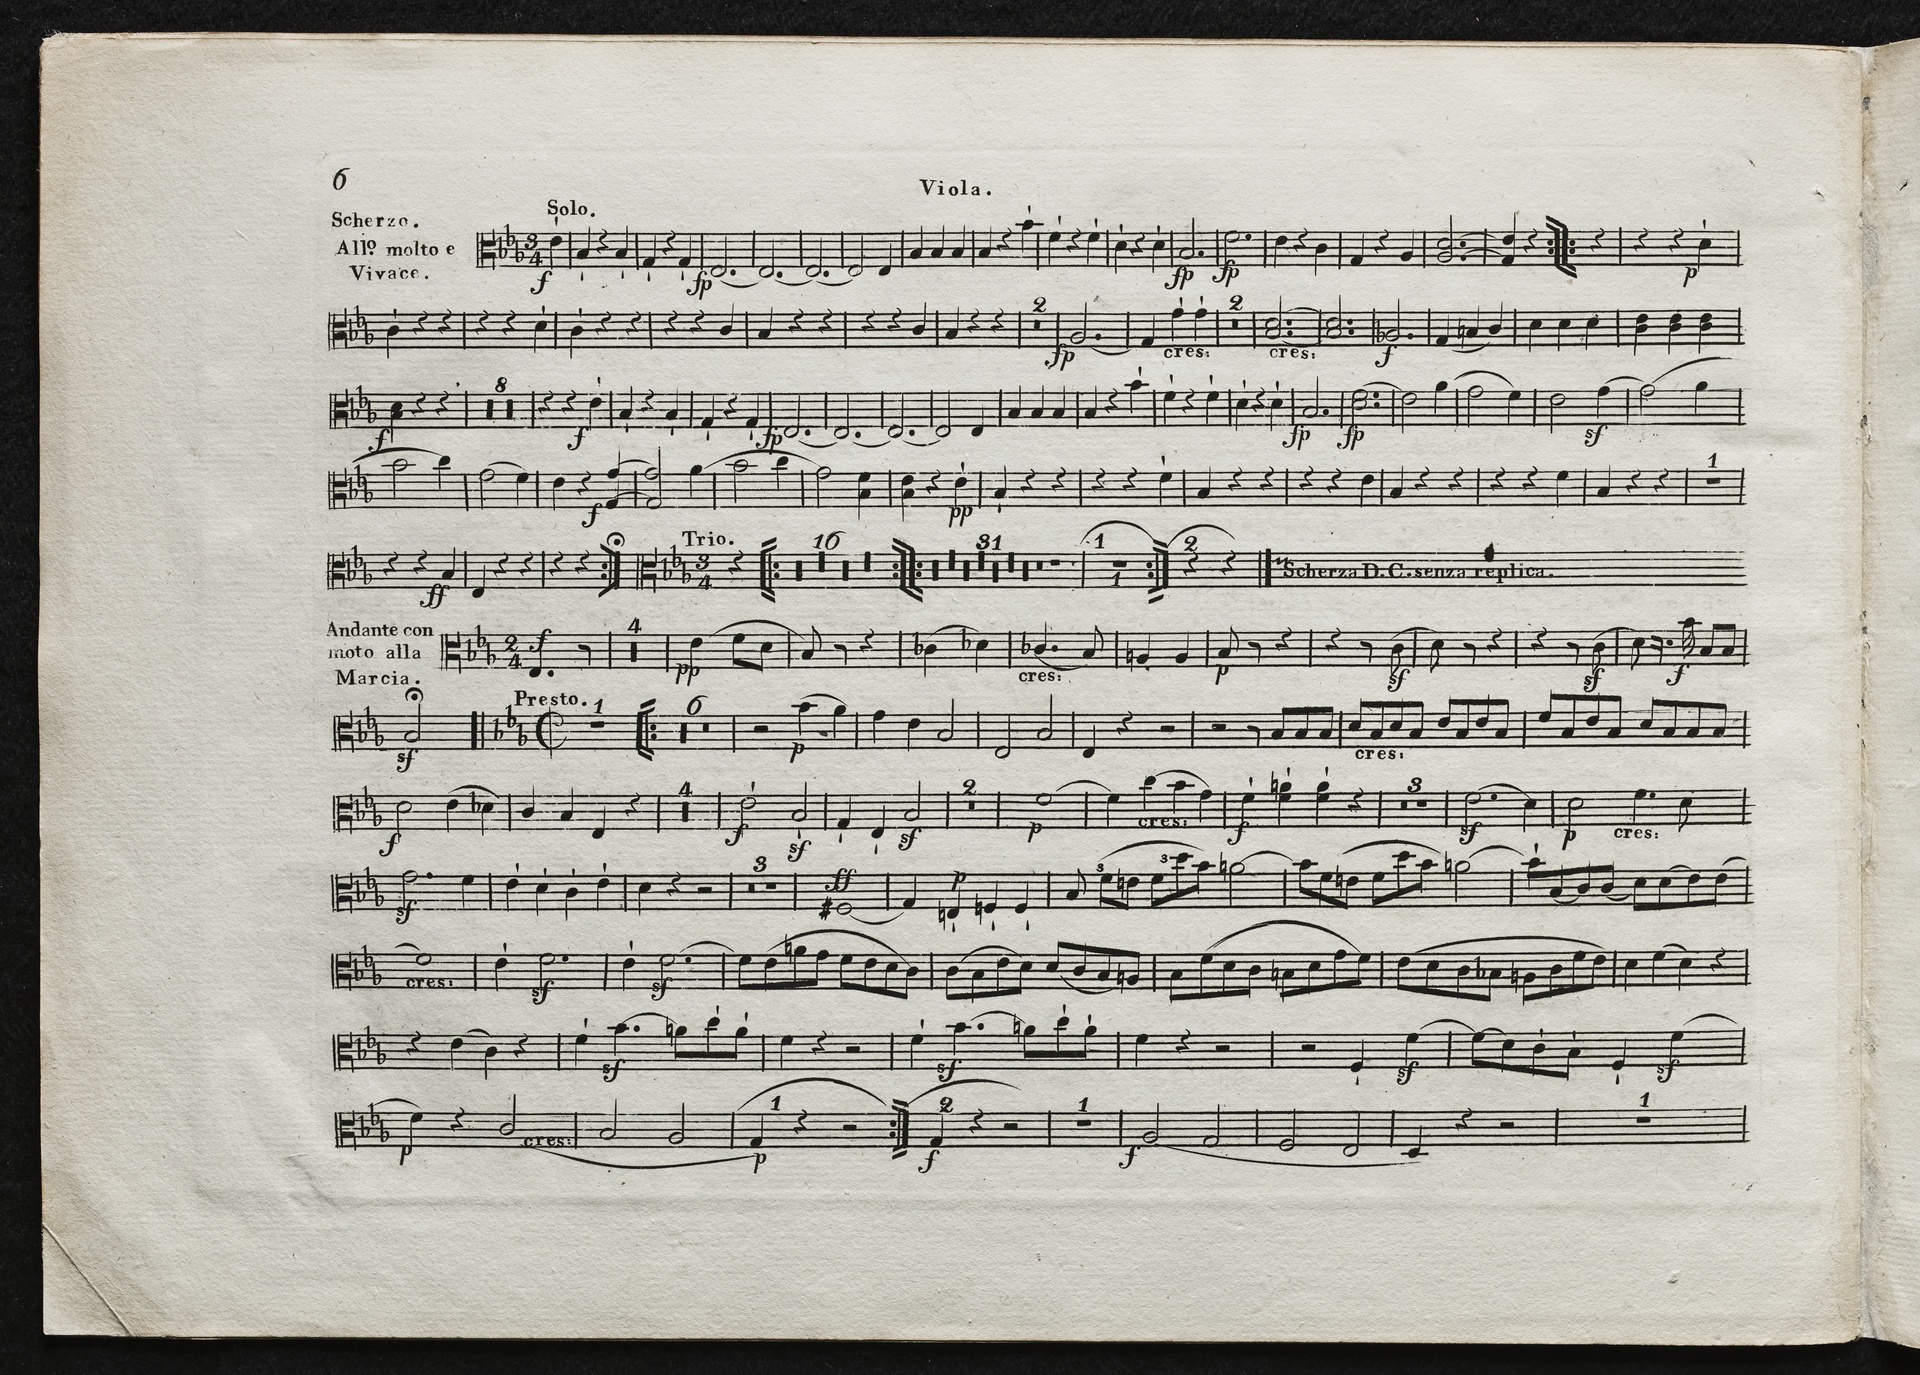 6
Viola.
Scherzo.
Allº molto e
Vivace.
Solo.
f fp fp fp p
2 fp cres: 2 cres: f
f 8 f fp fp fp sf
f pp 1
ff
Trio.
16 31 1 1 2
Scherza D. C. senza replica.
Andante con
moto alla
Marcia.
f 4 pp cres: p sf sf f
sf
Presto.
1 6 p cres:
f 4 f sf sf 2 p cres: f 3 sf p cres:
sf 3 ff p 3 3
cres: sf sf
sf sf sf sf
p cres: 1 p 2 f 1 f 1